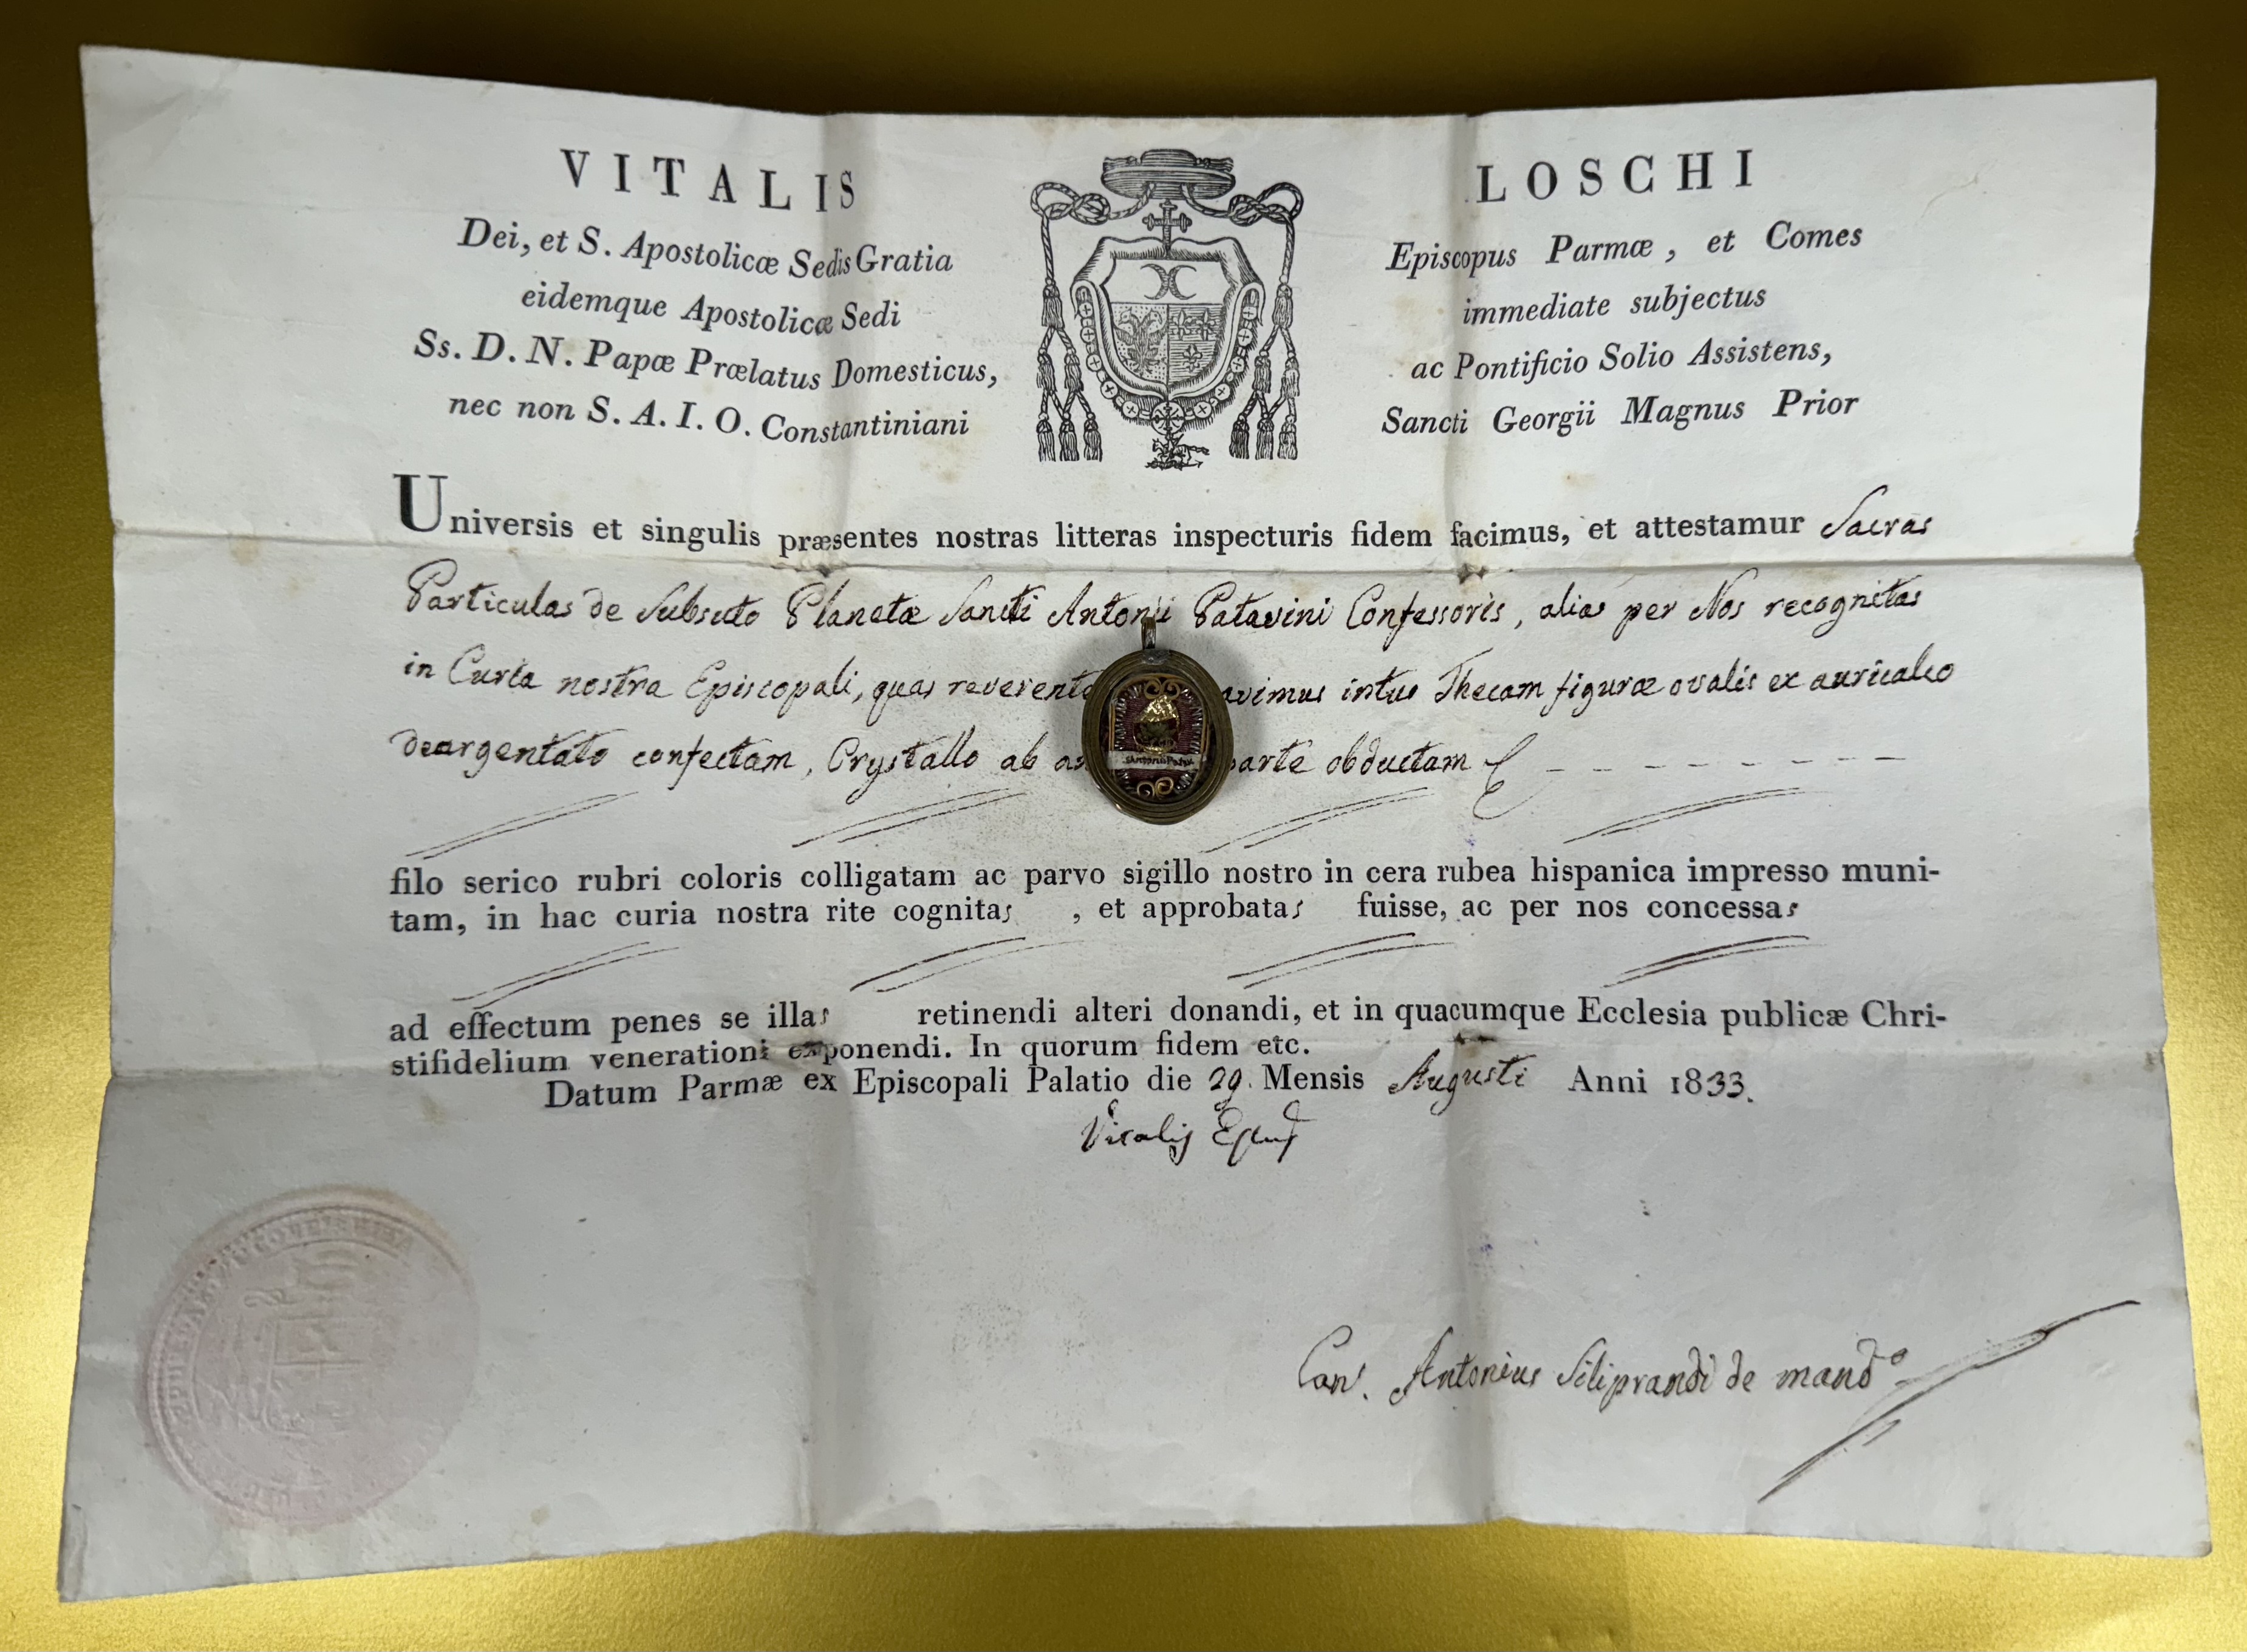 VITALIS LOSCHI
Dei, et S. Apostolicæ Sedis Gratia Episcopus Parmæ, et Comes
eidemque Apostolicæ Sedi immediate subjectus
Ss. D. N. Papæ Prælatus Domesticus, ac Pontificio Solio Assistens,
nec non S. A. I. O. Constantiniani Sancti Georgii Magnus Prior
Universis et singulis præsentes nostras litteras inspecturis fidem facimus, et attestamur Sacras
Particulas de Subsuto Planetæ Sancti Antonii Patavini Confessoris, alias per Nos recognitas
in Curia nostra Episcopali, quas reverente avimus intus Thecam figuræ ovalis ex auricalco
deargentato confectam, Crystallo ab parte obductam
S. Antonii Patav.
filo serico rubri coloris colligatam ac parvo sigillo nostro in cera rubea hispanica impresso muni-
tam, in hac curia nostra rite cognitas , et approbatas fuisse, ac per nos concessas
ad effectum penes se illas retinendi alteri donandi, et in quacumque Ecclesia publicæ Chri-
stifidelium venerationi exponendi. In quorum fidem etc.
Datum Parmæ ex Episcopali Palatio die 29. Mensis Augusti Anni 1833.
Vitalis Epus
Can. Antonius Siliprandi de mando